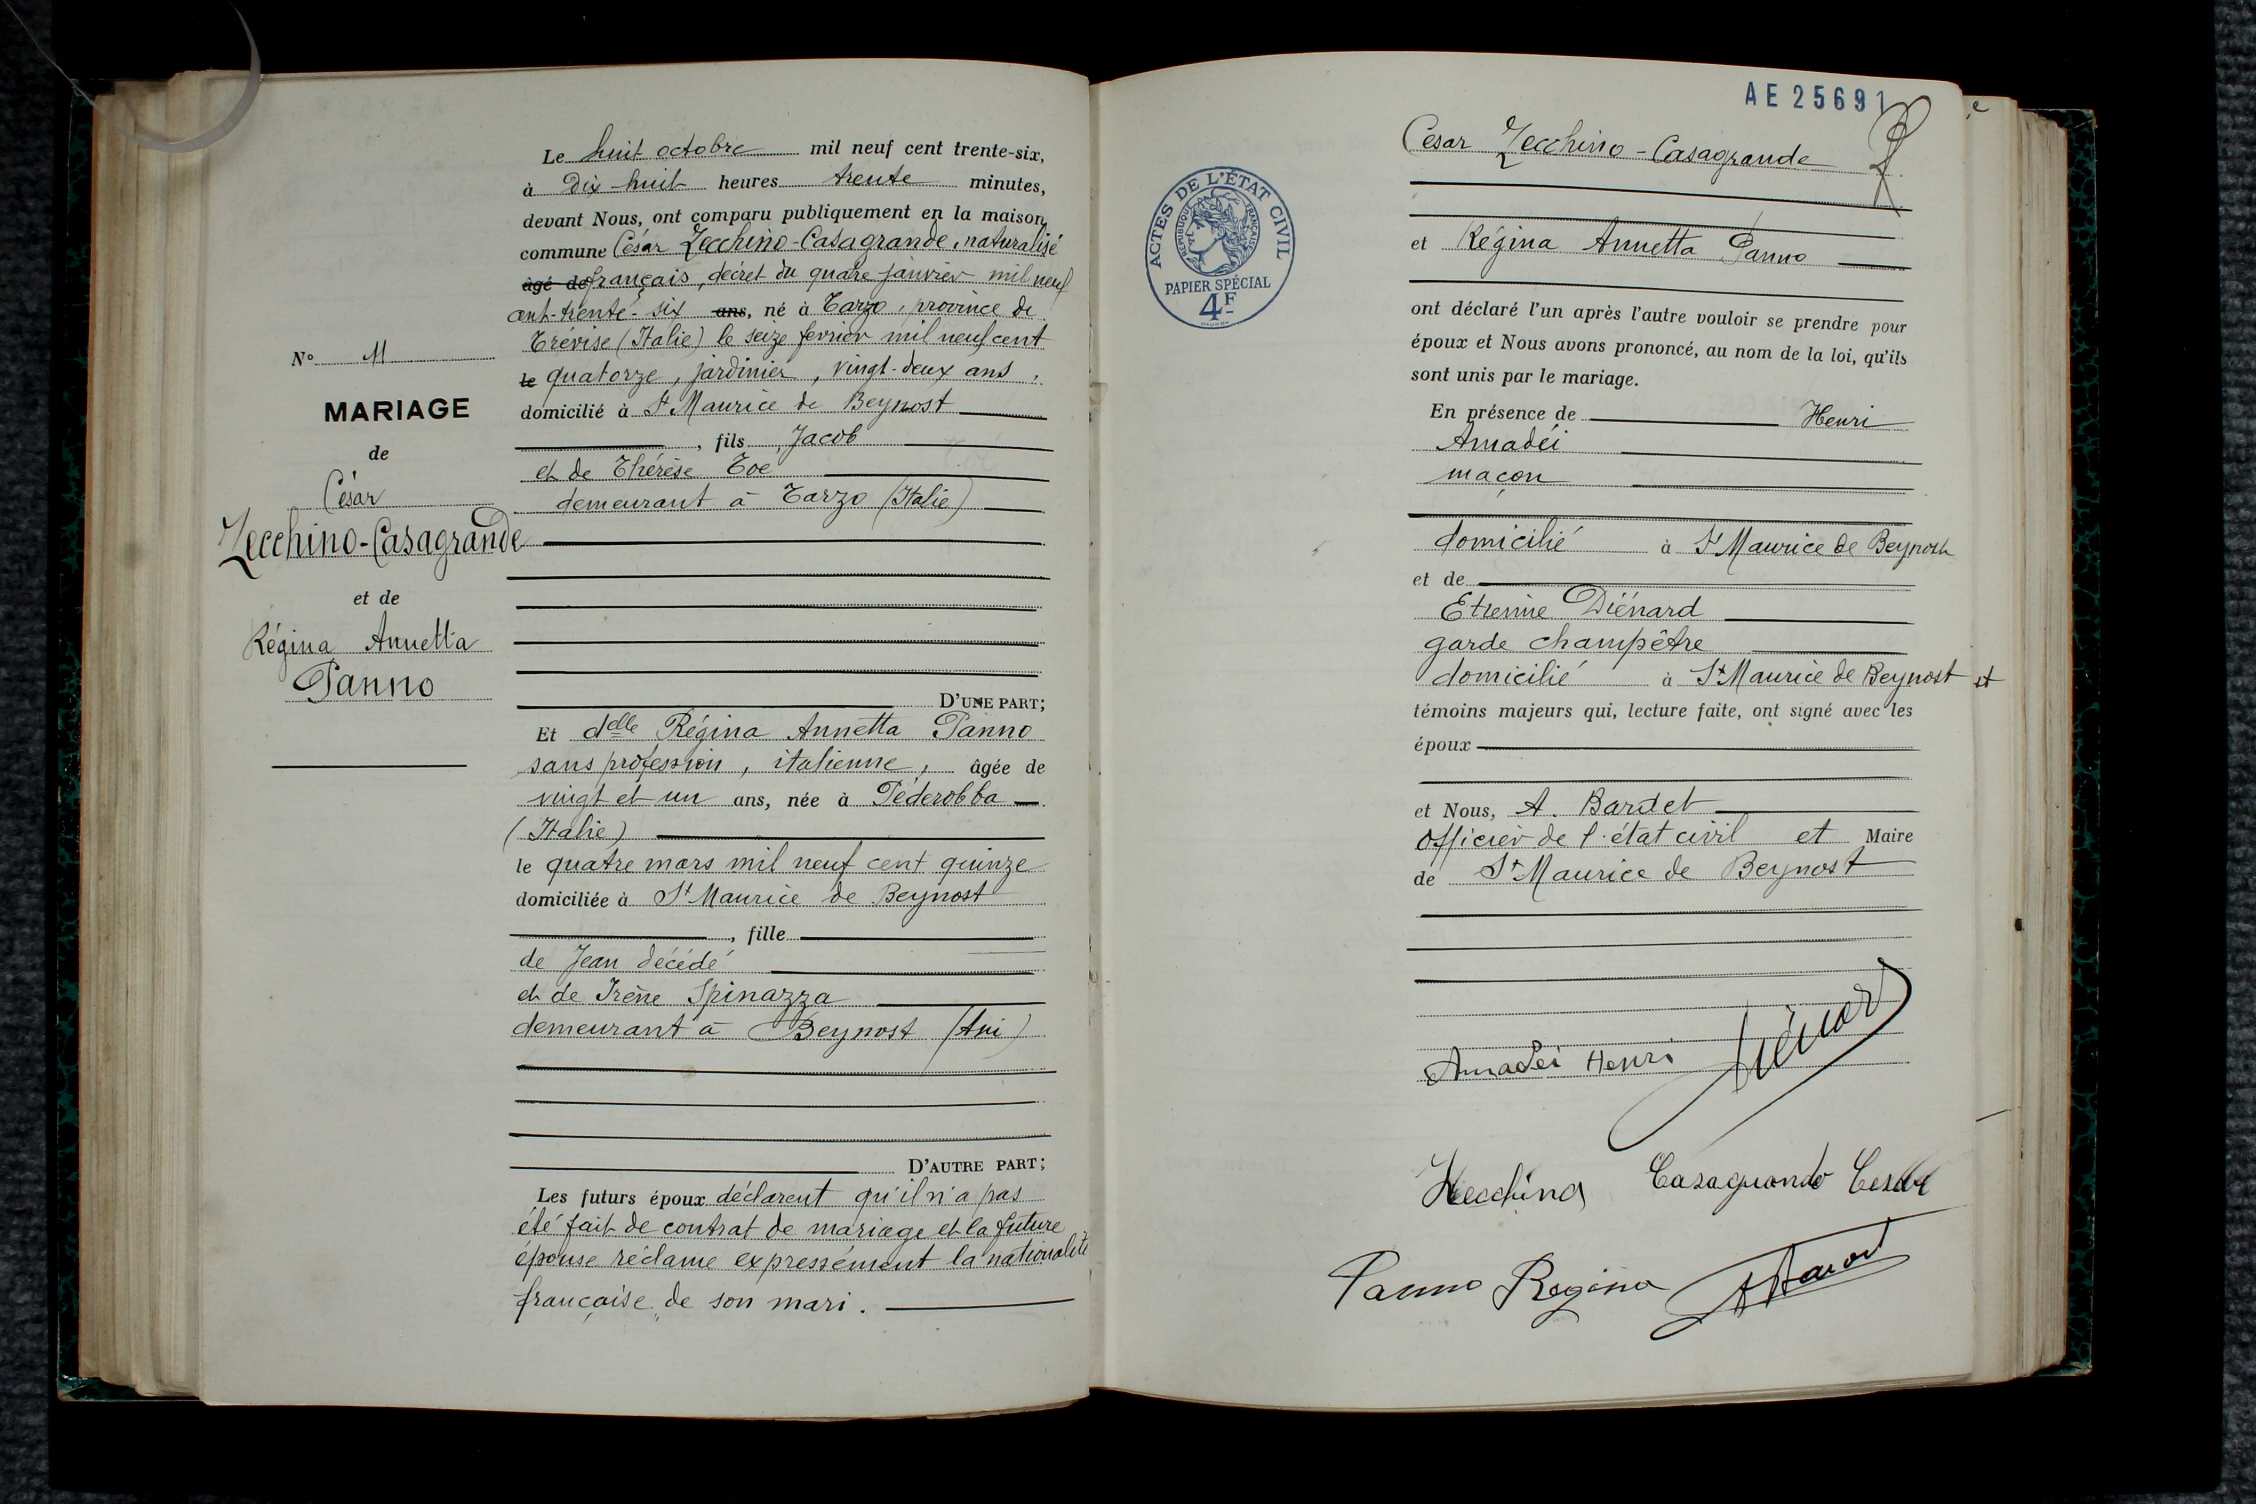 Le huit octobre mil neuf cent trente-six,
à Dix-huit heures trente minutes,
devant Nous, ont comparu publiquement en la maison
commune César Zecchino-Casagrande, naturalisé
âgé de français, décret du quatre janvier mil neuf
cent-trente-six ans, né à Tarzo, province de
Trévise (Italie) le seize fevrier mil neuf cent
le quatorze, jardinier, vingt-deux ans,
domicilié à St Maurice de Beynost
, fils Jacob
et de Thérèse Toe
demeurant à Tarzo (Italie)
D'UNE PART;
Et delle Régina Annetta Panno
sans profession, italienne, âgée de
vingt et un ans, née à Péderobba
(Italie)
le quatre mars mil neuf cent quinze
domiciliée à St Maurice de Beynost
, fille
de Jean décédé
et de Irène Spinazza
demeurant à Beynost (Ain)
D'AUTRE PART;
Les futurs époux déclarent qu'il n'a pas
été fait de contrat de mariage et la future
épouse réclame expressément la nationalité
française de son mari.
N° 11
MARIAGE
de
César
Zecchino-Casagrande
et de
Régina Annetta
Panno
AE 25691
ACTES DE L'ÉTAT CIVIL
RÉPUBLIQUE FRANÇAISE
PAPIER SPÉCIAL
4F
César Zecchino-Casagrande
et Régina Annetta Panno
ont déclaré l'un après l'autre vouloir se prendre pour
époux et Nous avons prononcé, au nom de la loi, qu'ils
sont unis par le mariage.
En présence de Henri
Amadéi
maçon
domicilié à St Maurice de Beynost
et de
Etienne Diénard
garde champêtre
domicilié à St Maurice de Beynost et
témoins majeurs qui, lecture faite, ont signé avec les
époux
et Nous, A. Bardet
Officier de l'état civil et Maire
de St Maurice de Beynost
Amadei Henri
Zecchino Casagrande Cesar
Panno Regina